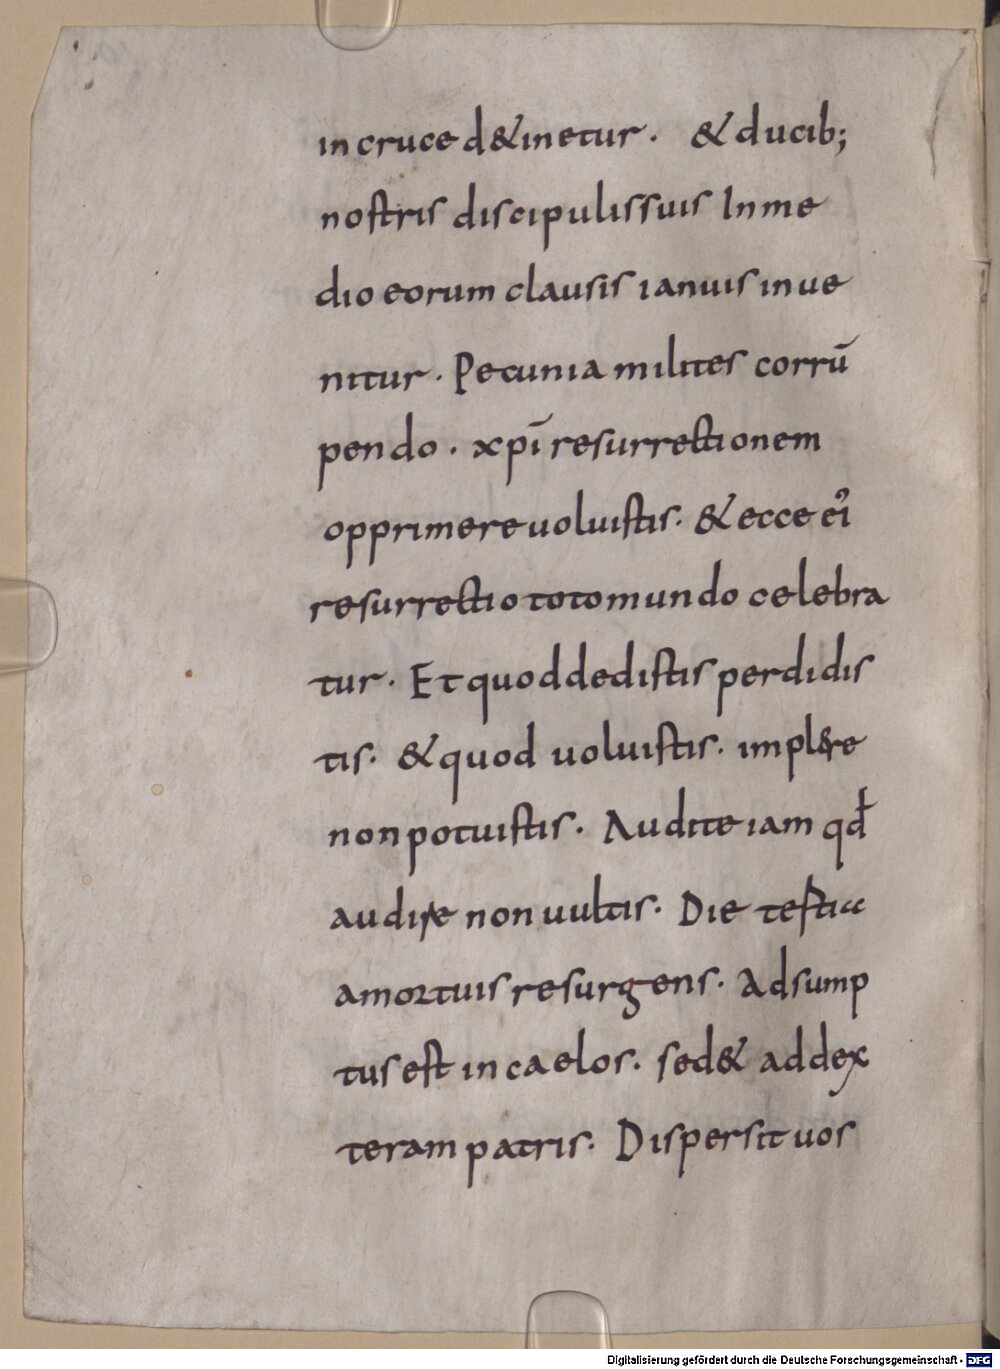 in cruce d&inetur. & ducib;
nostris discipulis suis In me
dio eorum clausis ianuis inue
nitur. Pecunia milites corrū
pendo. xpī resurrectionem
opprimere uoluistis. & ecce ei᾿
resurrectio toto mundo celebra
tur. Et quod dedistis perdidis
tis. & quod uoluistis. impl&re
non potuistis. Audite iam qđ
audire non uultis. Die tertia
a mortuis resurgens. Adsump
tus est in caelos. sed & ad dex
teram patris. Dispersit uos
Digitalisierung gefördert durch die Deutsche Forschungsgemeinschaft - DFG